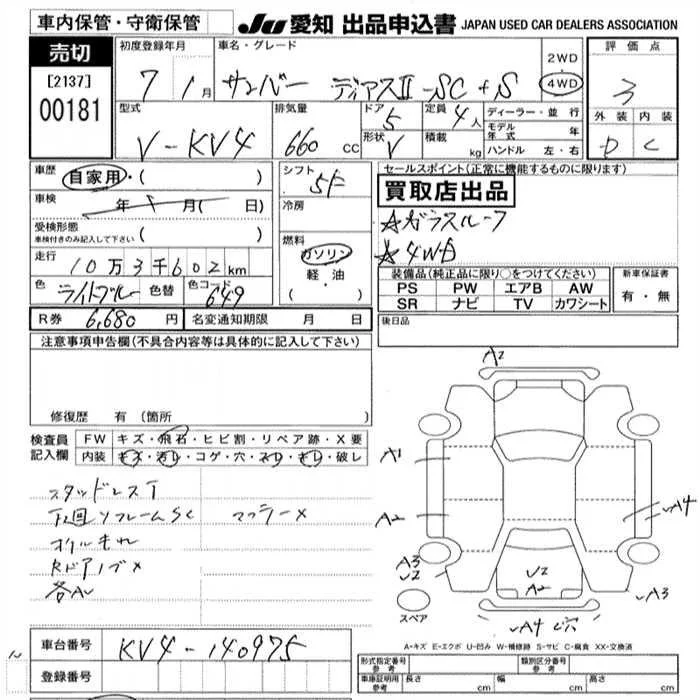 車内保管・守衛保管
JU 愛知 出品申込書 JAPAN USED CAR DEALERS ASSOCIATION
売切
[2137]
00181
初度登録年月
7 1月
車名・グレード
サンバー ディアスⅡ-SC+S
2WD
・
4WD
評価点
3
外装 内装
D C
型式
V-KV4
排気量
660 cc
ドア
5
形状
V
定員
4人
積載
kg
ディーラー・並行
モデル年式 年
ハンドル 左・右
車歴
自家用・( )
車検
年 月( 日)
受検形態
車検付きのみ記入して下さい ( )
走行
10万3千602km
色
ライトブルー
色替
色コード
649
シフト
5F
冷房
燃料
ガソリン
・
軽・油
( )
セールスポイント(正常に機能するものに限ります)
買取店出品
☆ガラスルーフ
☆4WD
装備品(純正品に限り○をつけてください)
PS PW エアB AW
SR ナビ TV カワシート
新車保証書
有・無
後日品
R券 6,680円
名変通知期限 月 日
注意事項申告欄(不具合内容等は具体的に記入して下さい)
修復歴 有(箇所
検査員記入欄
FW キズ・飛石・ヒビ割・リペア跡・X要
内装 キズ・汚レ・コゲ・穴・スレ・キレ・破レ
スタッドレスT
下回リフレームSC マフラーメ
オイルもれ
RドアノブX
各AU
A2
A1
A2
A4
A3
U2
U2
A2
A3
A4 穴
スペア
A-キズ E-エクボ U-凹み W-補修跡 S-サビ C-腐食 XX-交換済
車台番号
KV4-140975
登録番号
形式指定番号 参考
類別区分番号
車庫証明用 参考
長さ cm
幅 cm
高さ cm